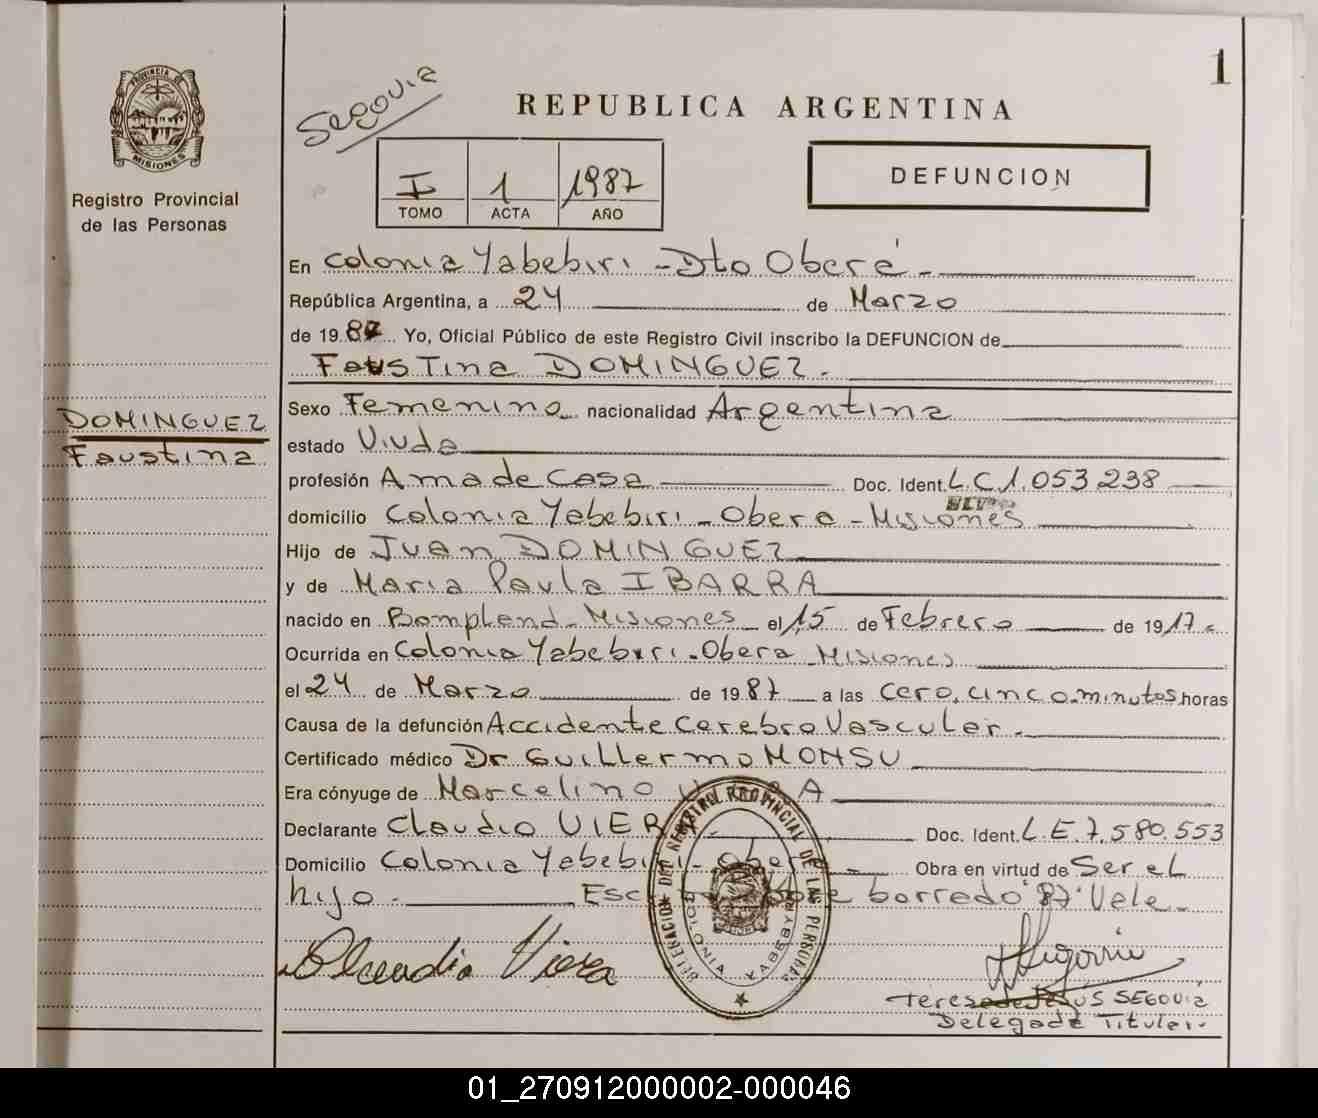 1
Segovia
REPUBLICA ARGENTINA
PROVINCIA DE
MISIONES
Registro Provincial
de las Personas
I 1 1987
TOMO ACTA AÑO
DEFUNCION
En Colonia Yabebiri - Dto Oberá -
República Argentina, a 24 de Marzo
de 1987 Yo, Oficial Público de este Registro Civil inscribo la DEFUNCION de
Faustina DOMINGUEZ.
DOMINGUEZ
Faustina
Sexo Femenino nacionalidad Argentina
estado Viuda
profesión Ama de Casa Doc. Ident. L C 1.053238
domicilio Colonia Yabebiri - Obera - Misiones
Hijo de JUAN DOMINGUEZ
y de Maria Paula IBARRA
nacido en Bompland - Misiones el 15 de Febrero de 1917.
Ocurrida en Colonia Yabebiri - Obera Misiones
el 24 de Marzo de 1987 a las cero, cinco minutos horas
Causa de la defunción Accidente Cerebro Vascular.
Certificado médico Dr Guillermo MONSU
Era cónyuge de Marcelino
Declarante Claudio VIERA Doc. Ident. L.E.7.580.553
Domicilio Colonia Yabebiri - Obera Obra en virtud de Ser el
hijo. borredo "87" Vale -
Claudio Viera
DELEGACION DEL REGISTRO PROVINCIAL DE LAS PERSONAS
COLONIA YABEBYRI
Teresa de Jesús SEGOVIA
Delegada Titular.
01_270912000002-000046